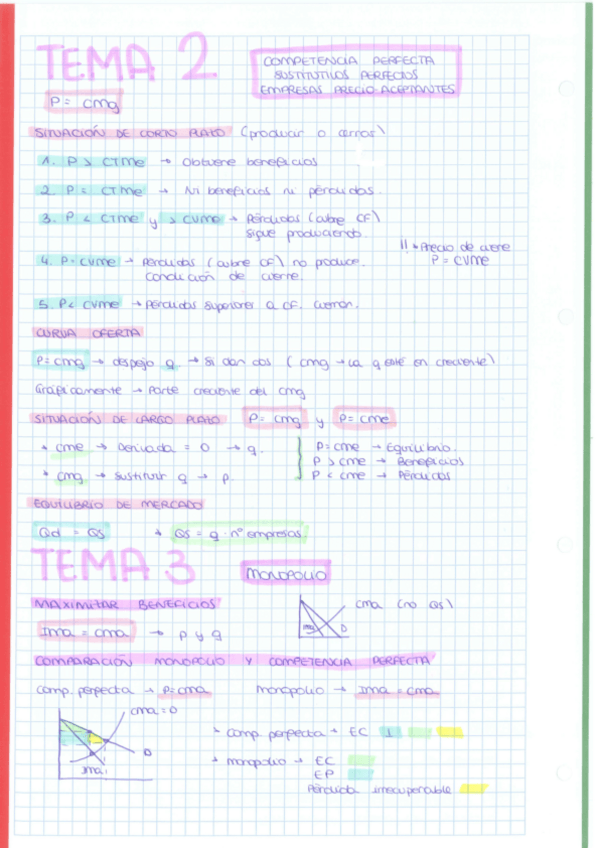 TEMA 2
COMPETENCIA PERFECTA
SUSTITUTIVOS PERFECTOS
EMPRESAS PRECIO-ACEPTANTES
P = cmg
SITUACIÓN DE CORTO PLAZO (producir o cerrar)
1. P > CTMe → Obtiene beneficios
2. P = CTMe → Ni beneficios ni pérdidas.
3. P < CTMe y > CVMe → Pérdidas (cubre CF)
sigue produciendo.
!! → Precio de cierre
P = CVMe
4. P = CVMe → Pérdidas (cubre CF) no produce.
Condición de cierre.
5. P < CVMe → Pérdidas superiores a CF. Cierran.
CURVA OFERTA
P = cmg → despejo q → Si dan dos (cmg → La q esté en creciente)
Gráficamente → Parte creciente del cmg
SITUACIÓN DE LARGO PLAZO P = cmg y P = cme
cme → Derivada = 0 → q.
cmg → sustituir q → p.
P = cme → Equilibrio.
P > cme → Beneficios
P < cme → Pérdidas
EQUILIBRIO DE MERCADO
Qd = Qs
Qs = q · nº empresas
TEMA 3
MONOPOLIO
MAXIMIZAR BENEFICIOS
Ima = cma → p y q
cma (no Qs)
D
COMPARACIÓN MONOPOLIO Y COMPETENCIA PERFECTA
Comp. perfecta → P = cma
Monopolio → Ima = cma
cma = O
D
Ima
Comp. perfecta → EC
monopolio → EC
EP
Pérdida irrecuperable